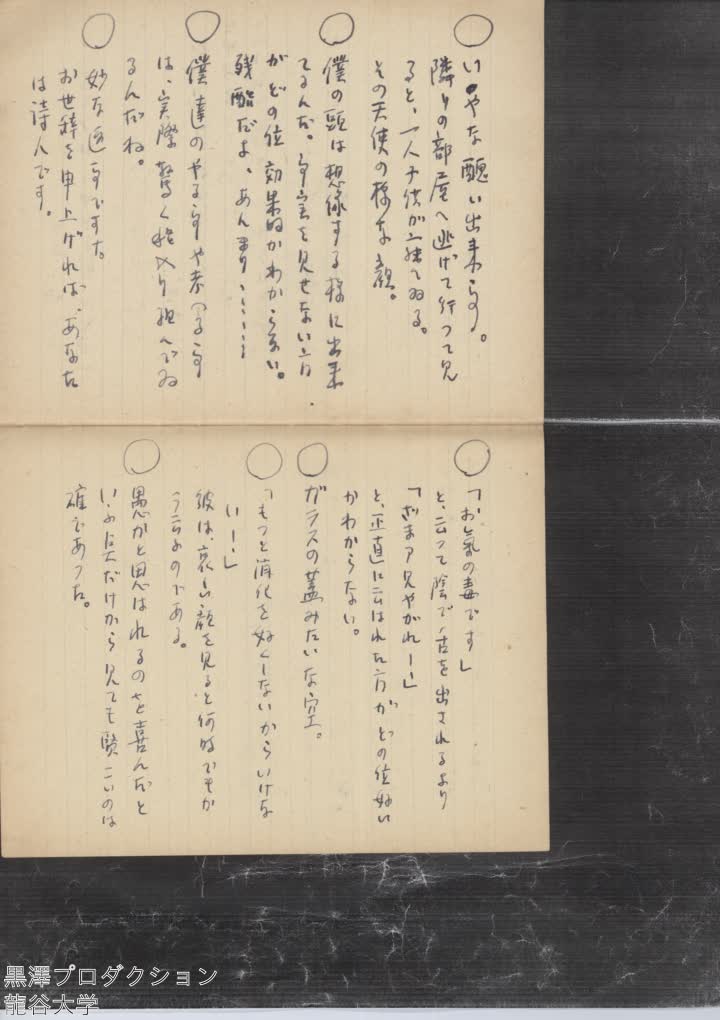 ○
いやな醜い出来事。
隣りの部屋へ逃げて行つて見
ると、一人子供が寝てゐる。
その天使の様な顔。
○
僕の頭は想像する様に出来
てるんだ。事実を見せない方
がどの位効果的かわからない。
残酷だよ、あんまり……
○
僕達のやる事や考へる事
は、実際驚く程入り組んでゐ
るんだね。
○
妙な返事ですな。
お世辞を申上げれば、あなた
は詩人です。
○
「お気の毒です」
と、云つて陰で舌を出されるより
「ざまア見やがれー」
と、正直に云はれた方がどの位好い
かわからない。
○
ガラスの蓋みたいな空。
○
「もつと消化を好くしないからいけな
いー」
彼は、哀しい顔を見ると何時でもか
う云ふのである。
○
愚かと思はれるのを喜んだと
いふ点だけから見ても賢こいのは
確であつた。
黒澤プロダクション
龍谷大学